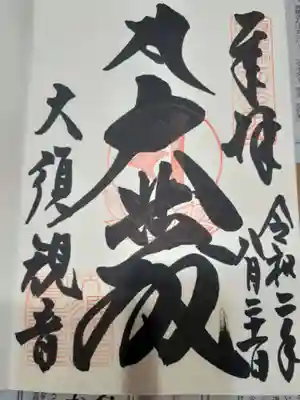 奉拝
令和二年
八月二十一日
大悲殿
大須観音